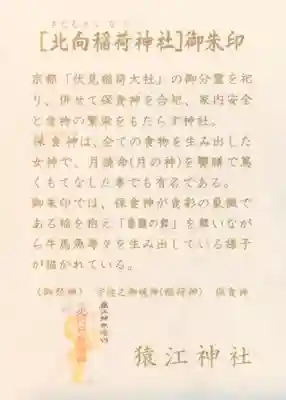 きたむきいなり
[北向稲荷神社]御朱印
京都「伏見稲荷大社」の御分霊を祀
り、併せて保食神を合祀、家内安全
と食神の繁栄をもたらす神社。
保食神は、全ての食物を生み出した
女神で、月読命(月の神)を饗膳で篤
くもてなした事でも有名である。
御朱印では、保食神が食彩の象徴で
ある稲を抱え「の舞」を舞いなが
ら牛馬魚等々を生み出している様子
が描かれている。
(御祭神) 宇迦之御魂神(稲荷神) 保食神
猿江神社境内
猿江神社